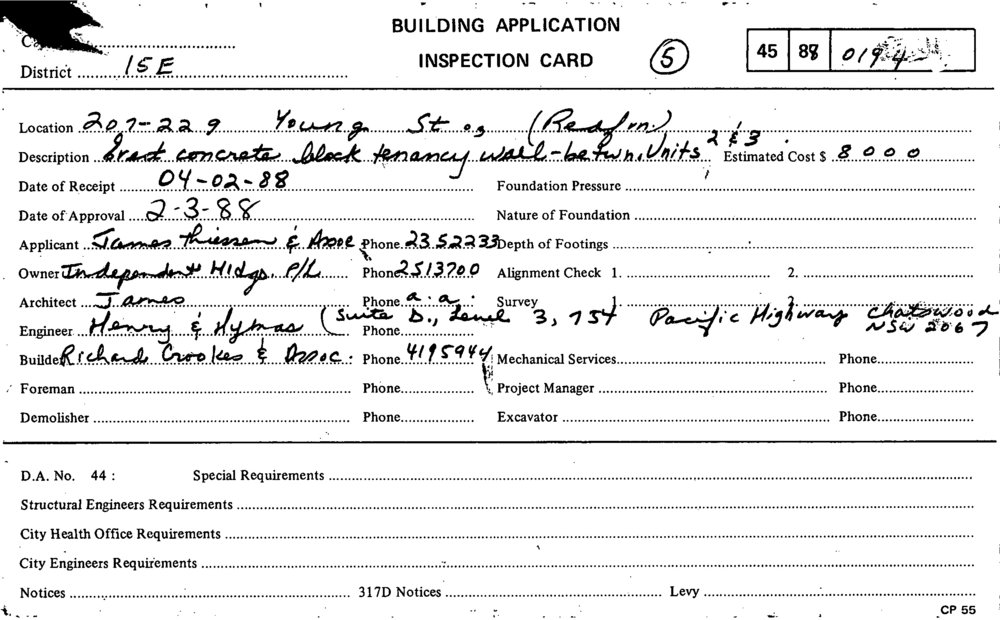 BUILDING APPLICATION
INSPECTION CARD
5
45 88 0194
District 15E
Location 207-229 Young St (Redfrn)
Description Erect concrete block tenancy wall-betwn. Units 2 & 3. Estimated Cost $ 8000
Date of Receipt 04-02-88 Foundation Pressure
Date of Approval 2-3-88 Nature of Foundation
Applicant James Thiessen & Assoc Phone 2352233 Depth of Footings
Owner Independent Hldgs. P/L Phone 2513700 Alignment Check 1. 2.
Architect James Phone a.a. Survey 1. 2.
Engineer Henry & Hymas (Suite D., Level 3, 754 Pacific Highway Chatswood NSW 2067
Phone
Builder Richard Crookes & Assoc. Phone 4195944 Mechanical Services Phone
Foreman Phone Project Manager Phone
Demolisher Phone Excavator Phone
D.A. No. 44 : Special Requirements
Structural Engineers Requirements
City Health Office Requirements
City Engineers Requirements
Notices 317D Notices Levy
CP 55